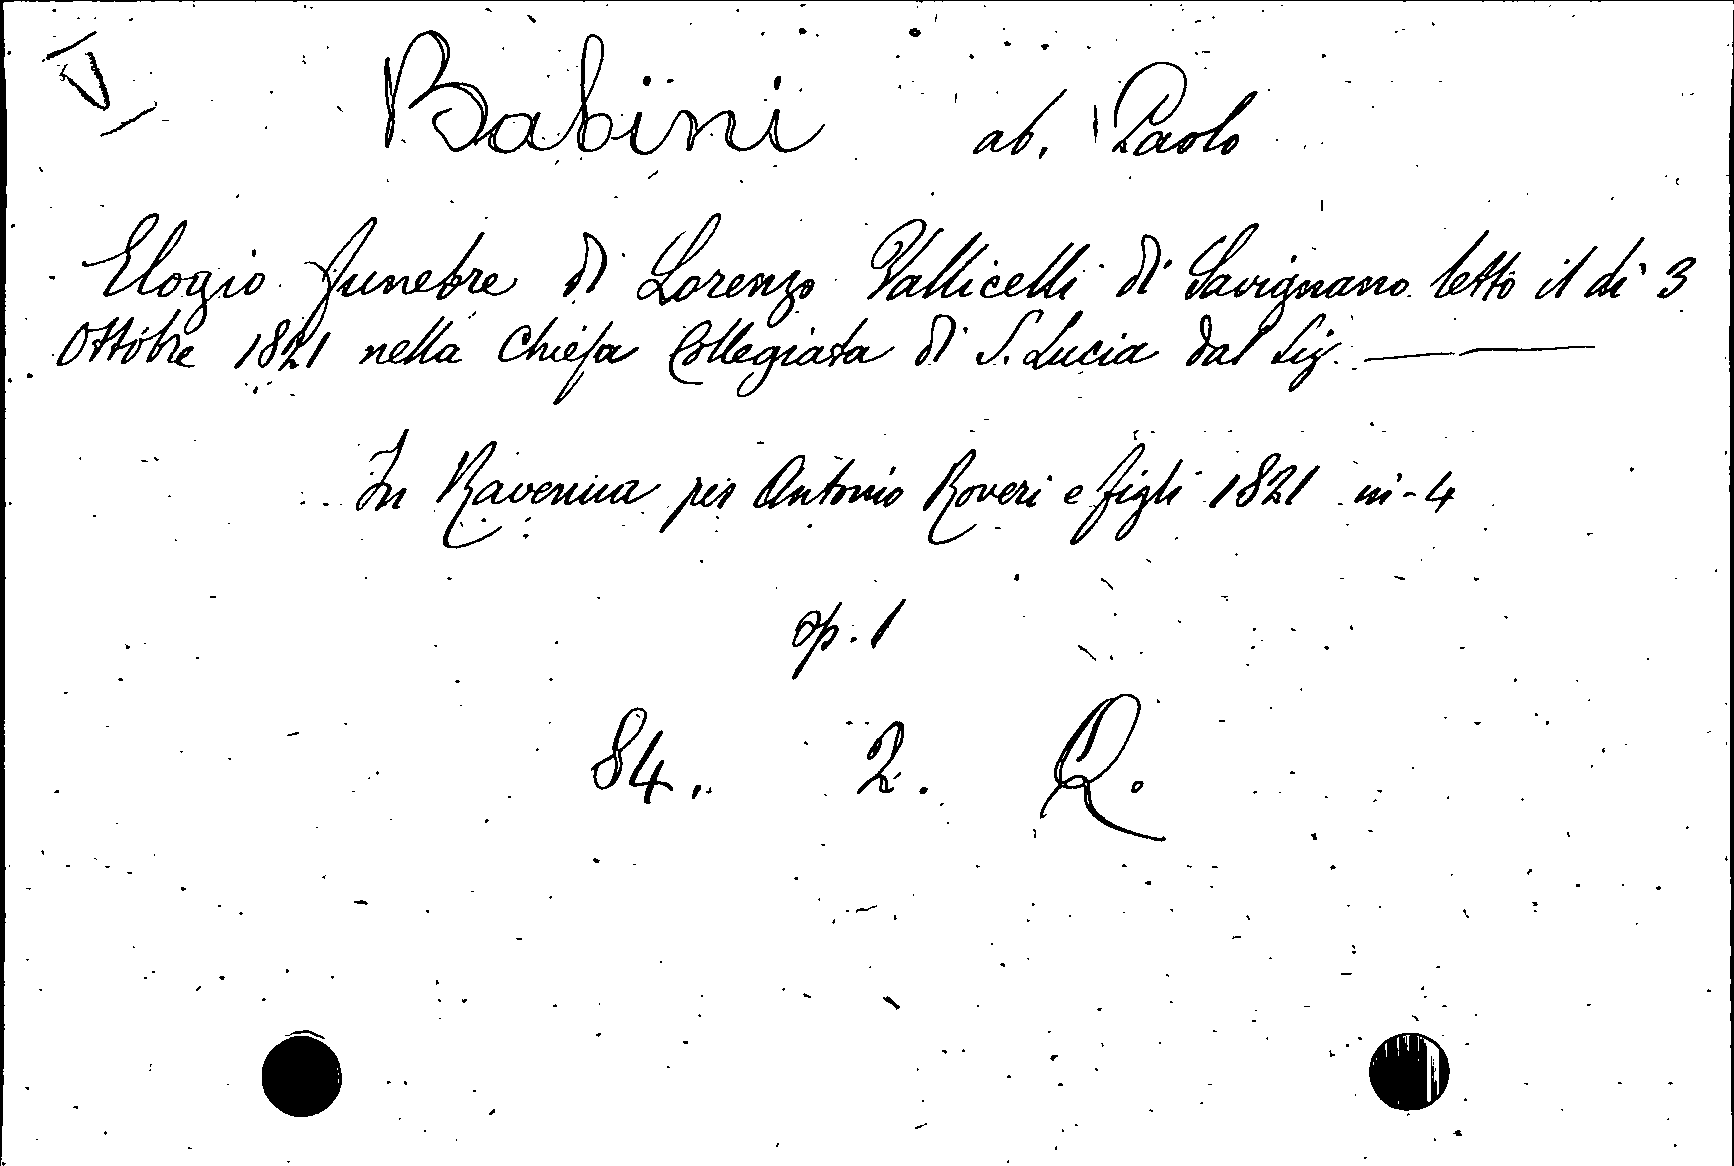 V
Babini ab. Paolo
Elogio funebre di Lorenzo Vallicelli di Savignano letto il dì 3
Ottobre 1821 nella Chiesa Collegiata di S. Lucia dal Sig. ——
In Ravenna per Antonio Roveri e figli 1821 in-4
op. 1
84. 2. Q.